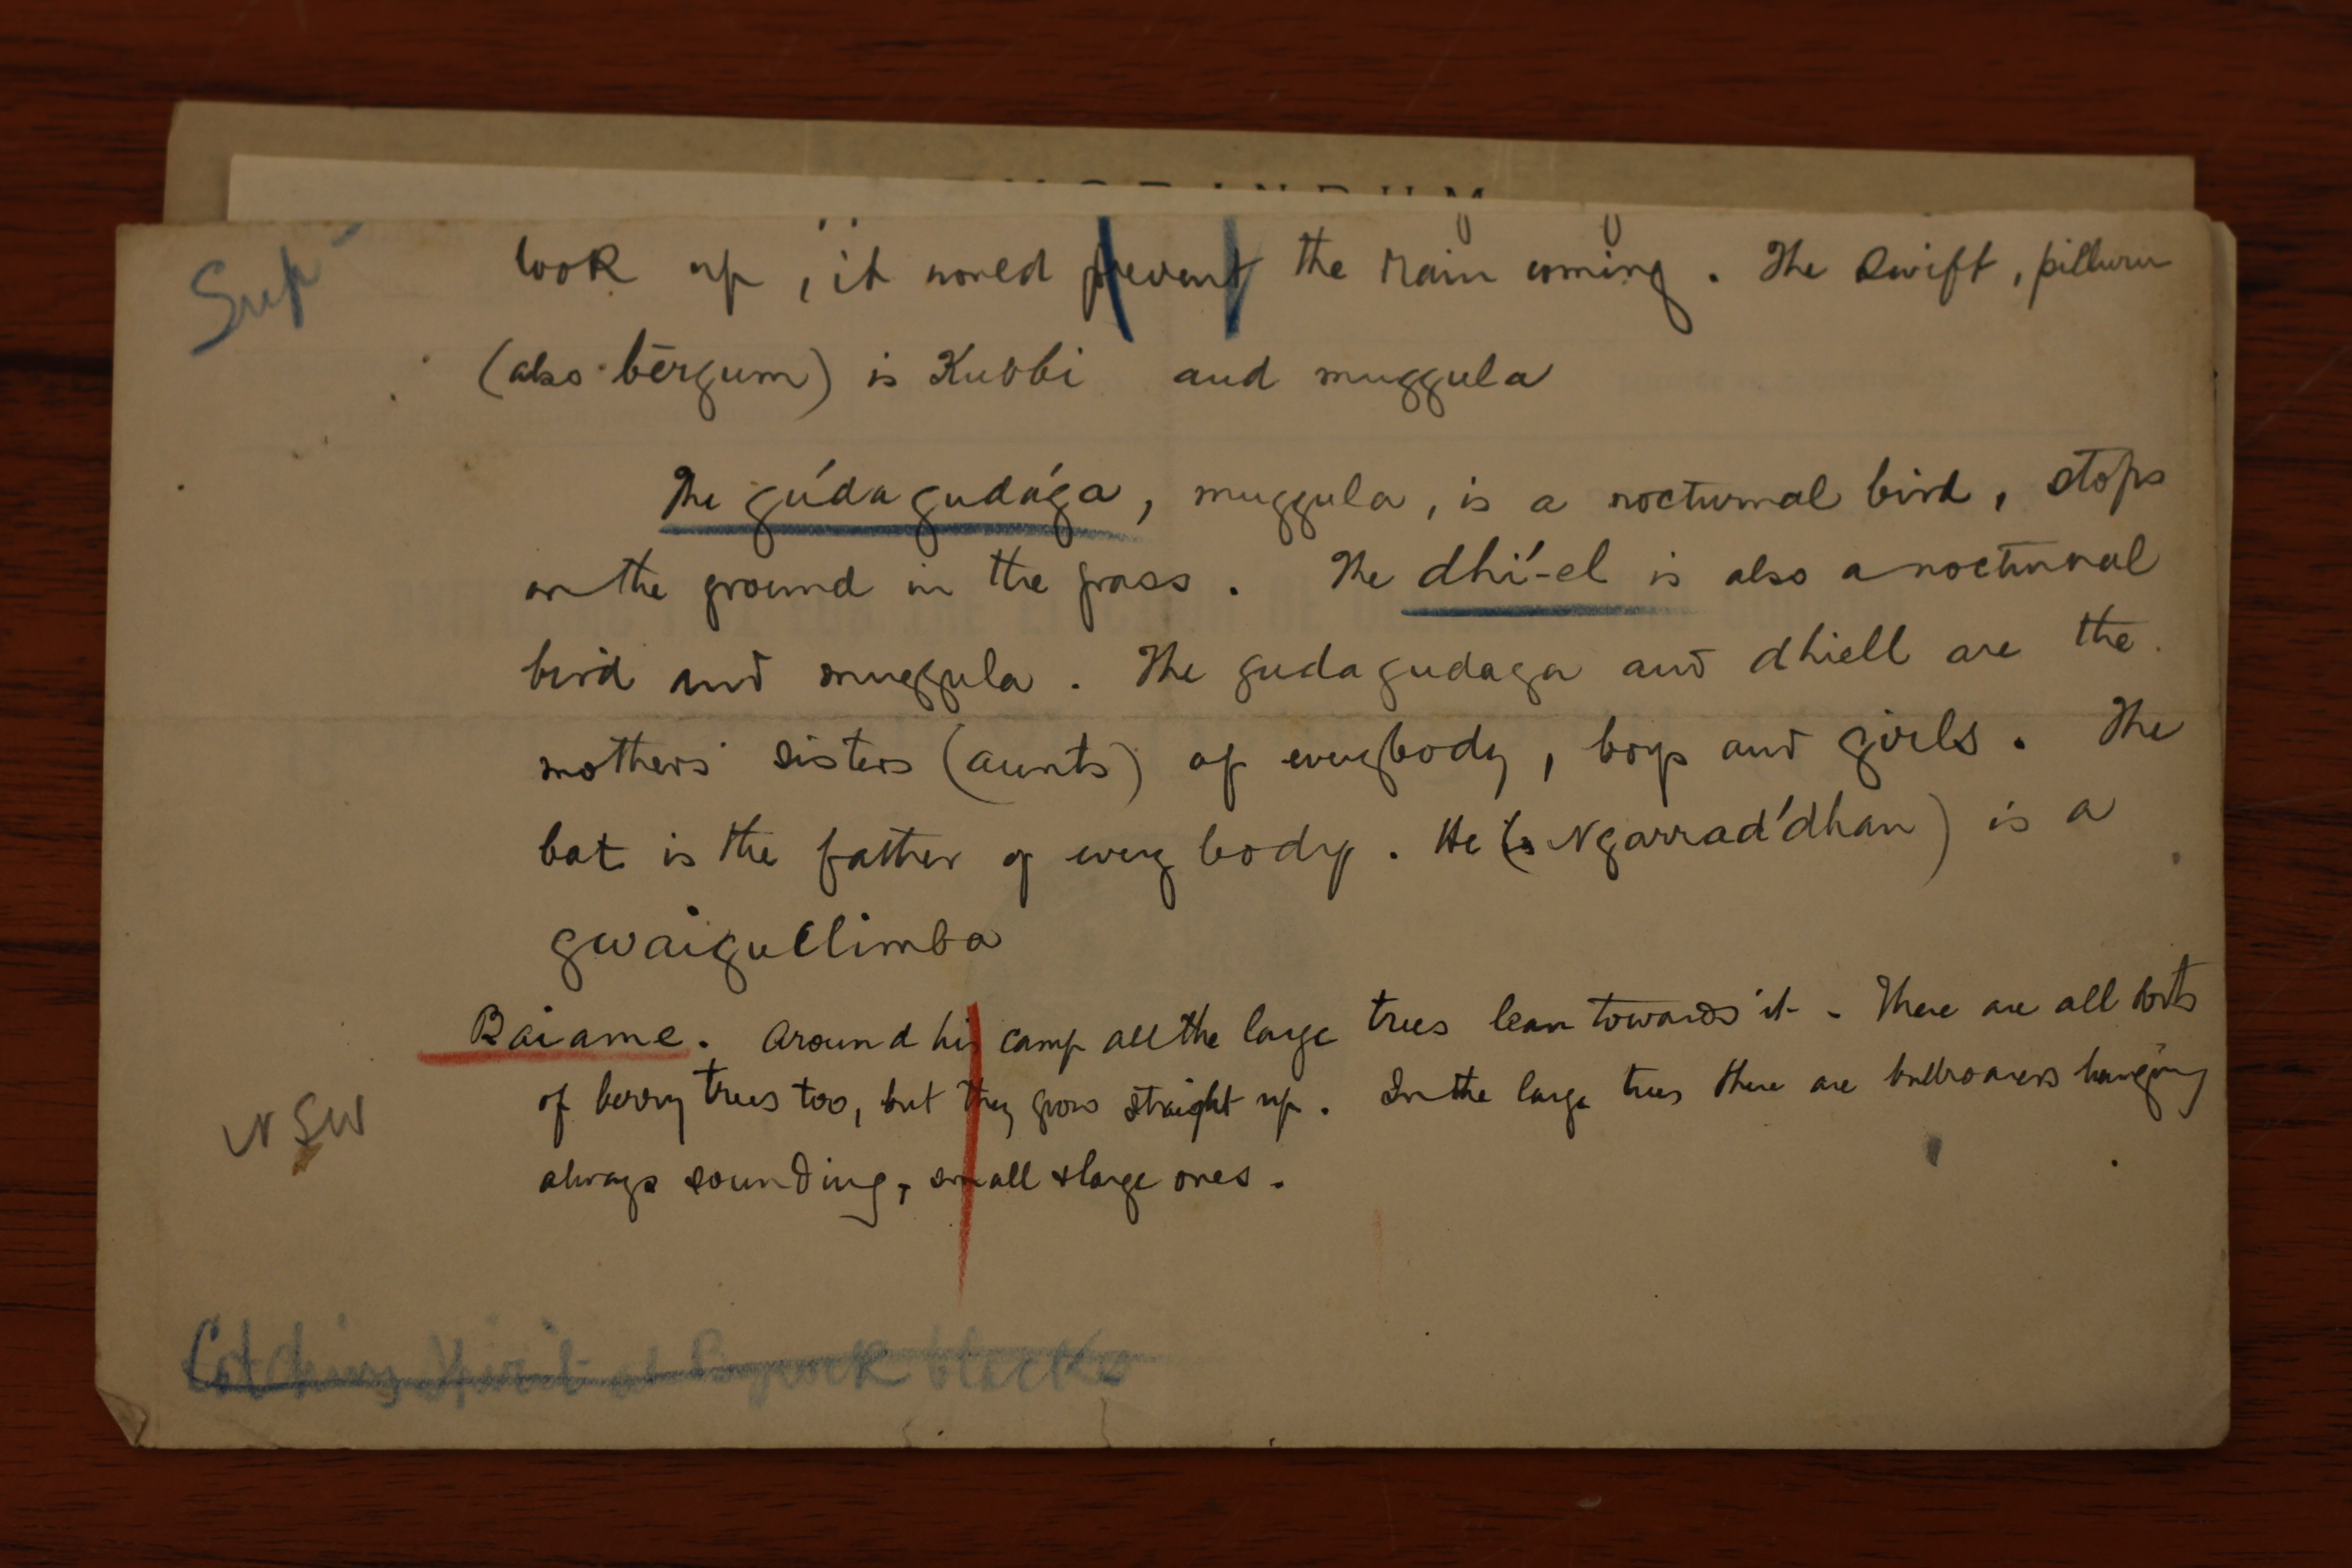 Sup
look up, it would prevent the rain coming. The Swift, pillurn
(also bērgum) is Kubbi and muggula
The gúdagudága, muggula, is a nocturnal bird, stops
on the ground in the grass. The dhí-el is also a nocturnal
bird and muggula. The gudagudaga and dhiell are the
mothers' sisters (aunts) of everybody, boys and girls. The
bat is the father of every body. He (is Ngarrad'dhan) is a
gwaigullimba
Baiame. Around his camp all the large trees lean towards it - There are all sorts
of berry trees too, but they grow straight up. In the large trees there are bullroarers hanging
NSW
always sounding, small & large ones.
Catching Spirit at Byrock blacks